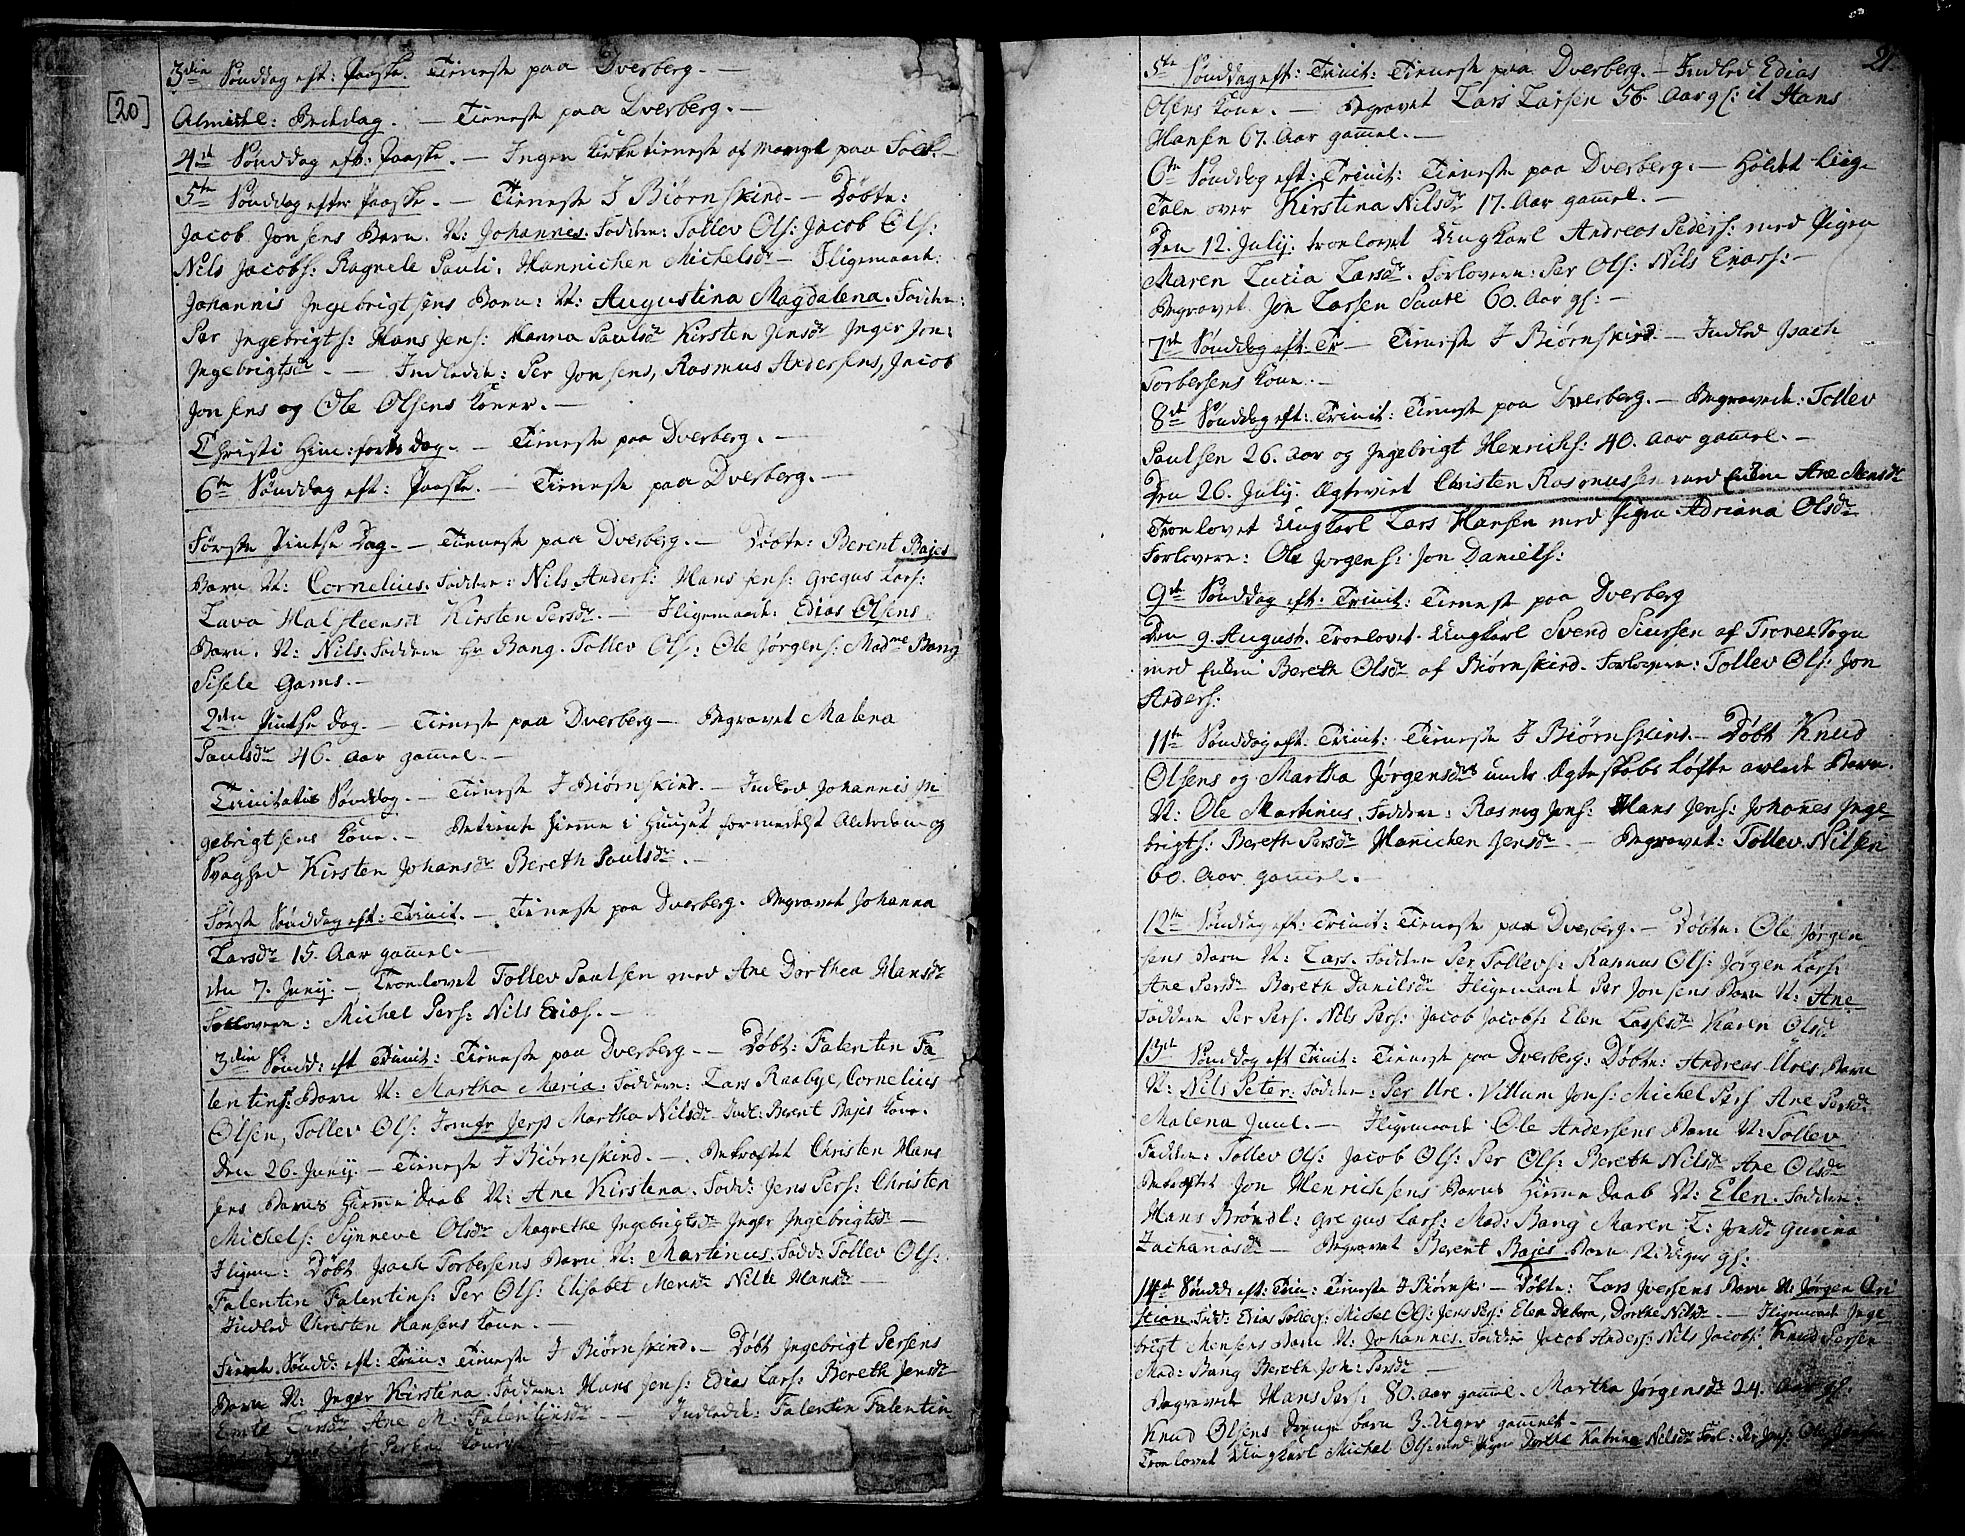 [20]
3die Sønddag eft: Paaske. Tieneste paa Dverberg. —
Almindel: Bededag. — Tieneste paa Dverberg. —
4de Sønddag eft: Paaske. — Ingen Kirketieneste af Mangel paa Folk. —
5te Sønddag efter Paaske. — Tieneste I Biørnskind. — Døbte:
Jacob Jonsens Barn. N: Johannes. Faddere: Tollev Ols: Jacob Ols:
Nils Jacobs: Ragnele Pauli. Hannichen Michelsdr — Iligemaade:
Johannis Ingebrigtsens Barn: N: Augustina Magdalena. Faddere:
Per Ingebrigts: Hans Jens: Hanna Paulsdr Kirsten Jensdr Inger Jon:
Ingebrigtsdr. — Indledde: Per Jonsens, Rasmus Andersens, Jacob
Jonsens og Ole Olsens Koner. —
Christi Him:farts Dag. — Tieneste paa Dverberg. —
6te Sønddag eft: Paaske. — Tieneste paa Dverberg. —
Første Pintse Dag. — Tieneste paa Dverberg. — Døbte: Berent Bajes
Barn N: Cornelius. Faddere: Nils Anders: Hans Jens: Gregus Lars:
Lava Kirsten Persdr. — Iligemaade: Edias Olsens
Barn. N: Nils. Faddere Hr Bang. Tollev Ols: Ole Jørgens: Madme Bang
Sisele Gams. —
2den Pintse Dag. — Tieneste paa Dverberg — Begravet Malena
Paulsdr 46. Aar gamel. —
Trinitatis Sønddag. — Tieneste I Biørnskind. — Indled Johannis In
gebrigtsens Kone. — Betiente Hiemme i Huuset formedelst Alderdom og
Svaghed Kirsten Johansdr Bereth Paulsdr. —
Første Sønddag eft: Trinit. — Tieneste paa Dverberg. Begravet Johanna
Larsdr 15. Aar gamel. —
den 7. Junij. — Troelovet Tollev Paulsen med Ane Dorthea Hansdr
Forlovere: Michel Pers: Nils —
3die Sønd: eft Trinit: Tieneste paa Dverberg — Døbt: Falentin Fa-
lentins: Barn N: Martha Maria: Faddere: Lars Raabye, Cornelius
Olsen, Tollev Ols: Jomfr Jerss Martha Nilsdr Indl: Berent Bajes Kone.
Den 26. Junij. — Tieneste I Biørnskind. — Bekræftet Christen Hans
sens Barns Hiemme Daab N: Ane Kirstina. Fadd: Jens Pers: Christen
Michels: Synneve Olsdr Magrethe Ingebrigtsdr Inger Ingebrigtsdr —
Iligem: Døbt Isach Torbersens Barn N: Martinus: Fadd: Tollev Ols:
Falentin Falentins: Per Ols: Elisabet Nille Hansdr —
Indled Christen Hansens Kone. —
Sønd: eft: Trin: Tieneste I Biørnskind. — Døbt Ingebrigt Persens
Barn N: Inger Kirstina. Faddere: Hans Jens: Edias Lars: Bereth Jensdr
Larsdr Ane M: Falentinsdr — Indledde: Falentin Falentin
Persens Koner
21.
5te Sønddag eft: Trinit: Tieneste paa Dverberg. — Indled Edias
Olsens Kone. — Begravet Lars Larsen 56. Aar gl: it Hans
Hansen 67. Aar gamel. —
6te Sønddag eft: Trinit: Tieneste paa Dverberg. — Holdt Liig-
Tale over Kirstina Nilsdr 17. Aar gamel. —
Den 12. Julij. troelovet Ungkarl Andreas Peders: med Pigen
Maren Lucia Larsdr. Forlovere: Per Ols: Nils Enars: —
Begravet Jon Larsen 60. Aar gl: —
7de Sønddag eft: Tr — Tieneste I Biørnskind. — Indled Isach
Torbersens Kone. —
8de Sønddag eft: Trinit: Tieneste paa Dverberg. — Begravede: Tollev
Paulsen 26. Aar og Ingebrigt Henrichs: 40. Aar gamel. —
Den 26. Julij. Ægteviet Christen Rasmussen med Enken Ane Mensdr
Troelovet Ungkarl Lars Hansen med Pigen Adriana Olsdr
Forlovere: Ole Jorgens: Jon Daniels:
9de Sønddag eft: Trinit: Tieneste paa Dverberg
Den 9. August. Troelovet Ungkarl Svend Siursen af Trones Sogn
med Enken Bereth Olsdr af Biørnskind. Forlovere: Tollev Ols: Jon
Anders:
11te Sønddag eft: Trinit: Tieneste I Biørnskind. — Døbt Knud
Olsens og Martha Jørgensdrs under Ægteskabs Løfte avlede Barn
N: Ole Martinus, Faddere: Rasmg Jens: Hans Jens: Johanes Inge-
brigts: Bereth Persdr Hanichen Jensdr. — Begravet: Tollev Nilsen
60. Aar gamel. —
12te Sønddag eft: Trinit: Tieneste paa Dverberg. — Døbte: Ole Jørgen
sens Barn N: Lars. Faddere Per Tollevs: Rasmus Ols: Jørgen Lars:
Ane Persdr Bereth Danilsdr Iligemaade Per Jonsens Barn N: Ane
Faddere Per Pers. Nils Pers: Jacob Jacobs: Elen Larsdr Karen Olsdr
13de Sønddag eft Trinit: Tieneste paa Dverberg: Døbte: Andreas Ures Barn
N: Nils Peter: Faddere: Per Ure. Villum Jons: Michel Pers Ane Persdr
Malena Juul. — Iligemaade Ole Andersens Barn N: Tollev
Faddere: Tollev Ols: Jacob Ols: Per Ols: Bereth Nilsdr Ane Olsdr
Bekræftet Jon Henrichsens Barns Hiemme Daab N: Elen. Faddere:
Hans Brøndl: Gregus Lars: Mad: Bang Maren L: Jonsdr Gurina
Zachariasdr — Begravet Berent Bajes Barn 12 Uger gl:
14de Sønd: eft: Trin: Tieneste I Biørnsk: — Døbte: Lars Iversens Barn N: Jørgen Cri
stian. Fadd: Edias Tollevs: Michel Ols: Jens Pers: Elen Debora, Dorthe Nilsdr — Iligemaade Inge
brigt Mensens Barn N: Johannes. Faddere Jacob Anders: Nils Jacobs: Knud Persen
Mad: Bang Bereth Joh: Persdr —
Begravede Hans Pers: 80. Aar gamel. Martha Jørgensdr 24. Aar gl.
Knud Olsens Drenge barn 3. Uger gammel. —
Troelovet Ungkarl Michel Ols: med Pigen Dorthe Katrina Nilsdr Forl: Per Jons: Ole